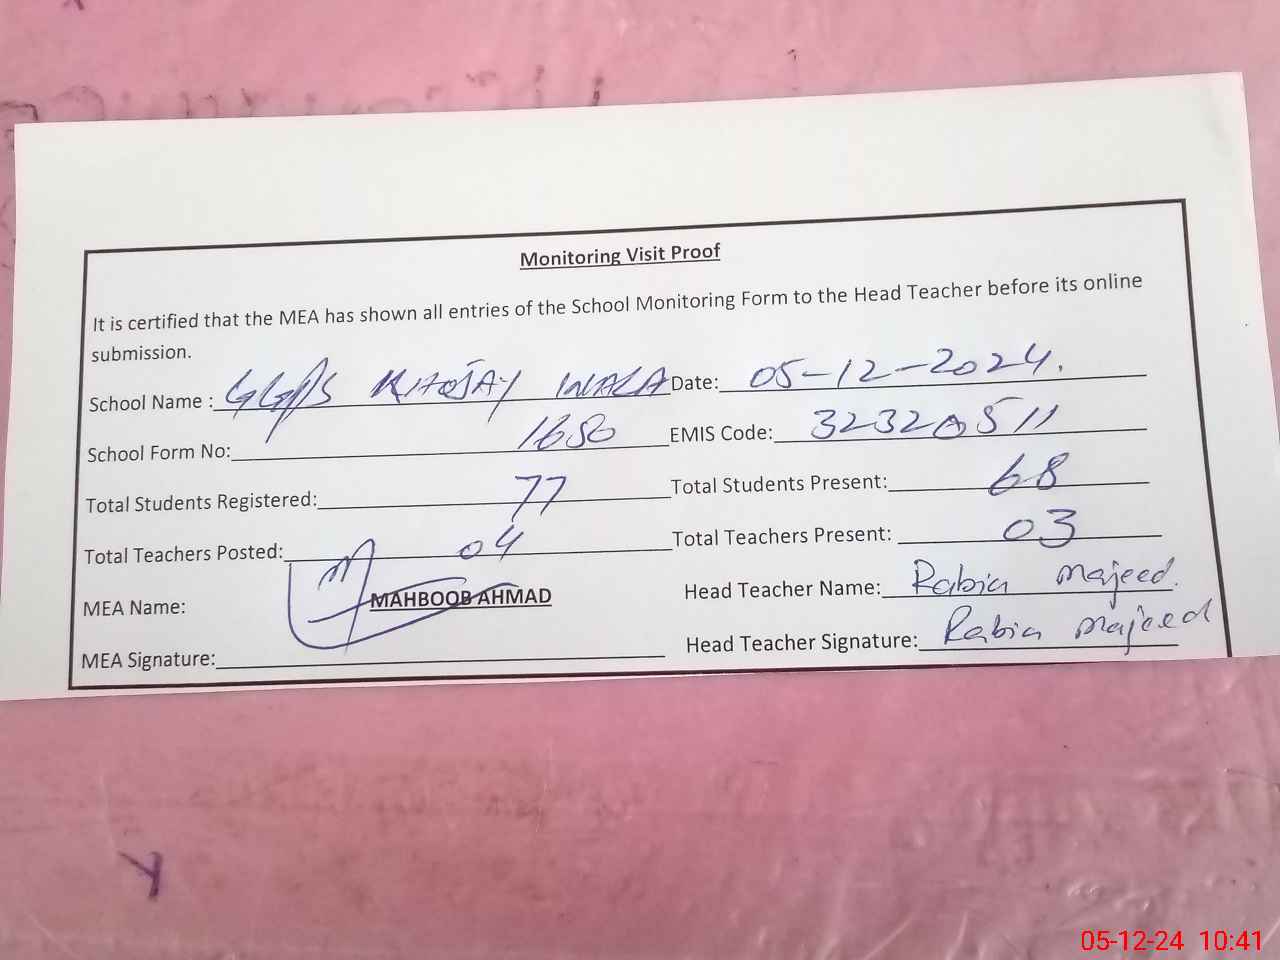 Monitoring Visit Proof
It is certified that the MEA has shown all entries of the School Monitoring Form to the Head Teacher before its online
submission.
School Name : GGPS KHOJAY WALA Date: 05-12-2024.
School Form No: 1650 EMIS Code: 32320511
Total Students Registered: 77 Total Students Present: 68
Total Teachers Posted: 04 Total Teachers Present: 03
MEA Name: MAHBOOB AHMAD Head Teacher Name: Rabia Majeed.
MEA Signature: Head Teacher Signature: Rabia Majeed
05-12-24 10:41